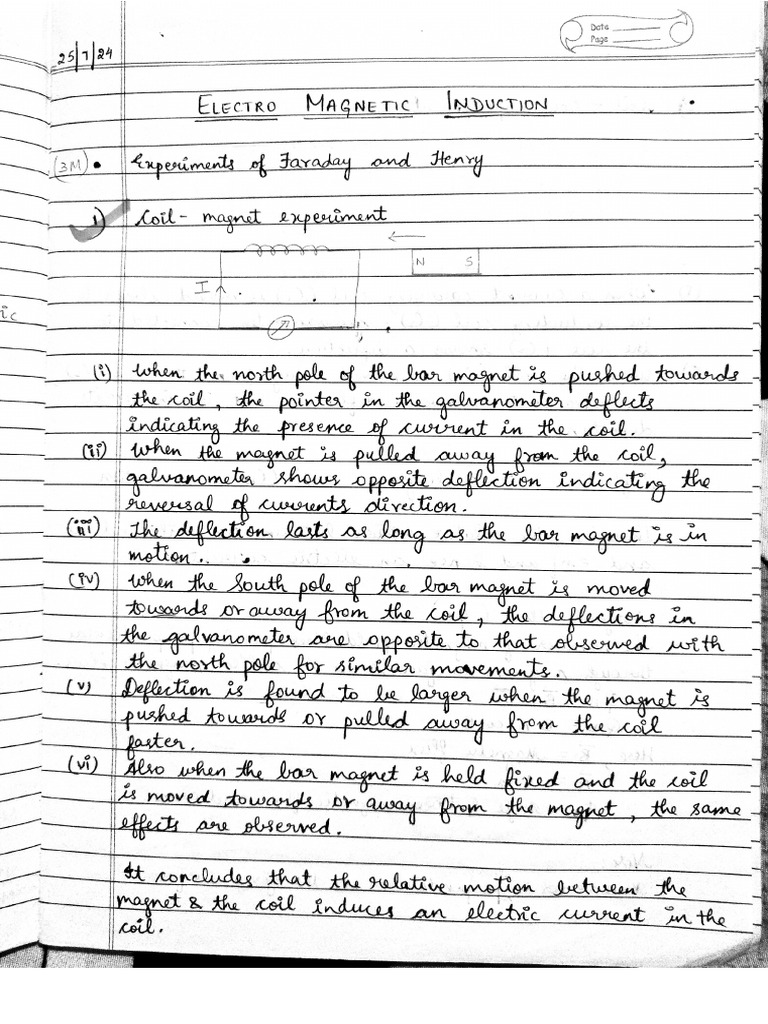 Date
Page
25/7/24
ELECTRO MAGNETIC INDUCTION
(3M) • Experiments of Faraday and Henry
1) Coil - magnet experiment
N S
I
ic
(i) When the north pole of the bar magnet is pushed towards
the coil, the pointer in the galvanometer deflects
indicating the presence of current in the coil.
(ii) When the magnet is pulled away from the coil,
galvanometer shows opposite deflection indicating the
reversal of currents direction.
(iii) The deflection lasts as long as the bar magnet is in
motion.
(iv) When the South pole of the bar magnet is moved
towards or away from the coil, the deflections in
the galvanometer are opposite to that observed with
the north pole for similar movements.
(v) Deflection is found to be larger when the magnet is
pushed towards or pulled away from the coil
faster.
(vi) Also when the bar magnet is held fixed and the coil
is moved towards or away from the magnet, the same
effects are observed.
It concludes that the relative motion between the
magnet & the coil induces an electric current in the
coil.